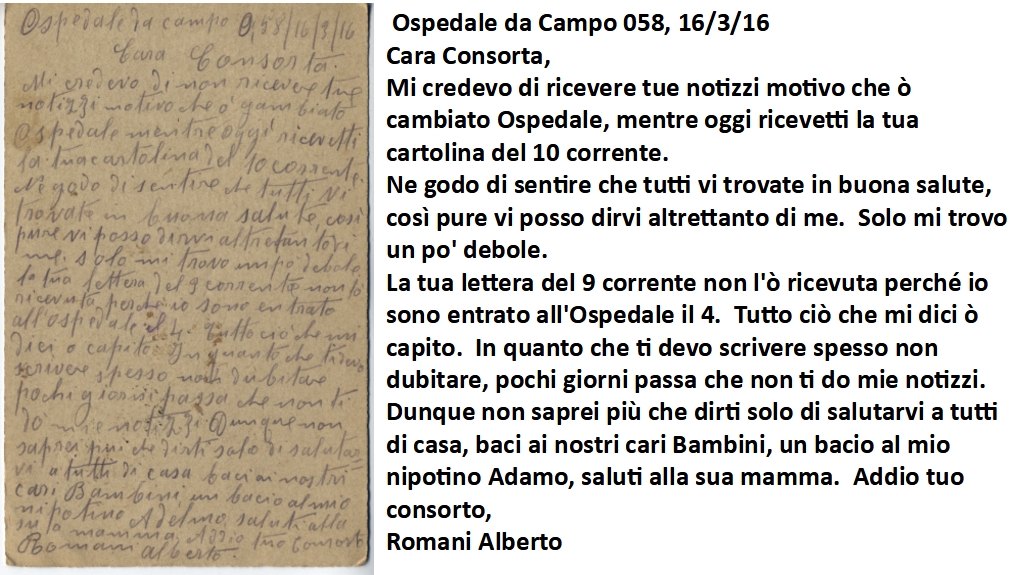 Ospedale da campo 0,58/16/3/16
Cara Consorta.
Mi credevo di non ricevere tue
notizzi motivo che ò gambiato
Ospedale mentre oggi ricevetti
la tua cartolina del 10 corrente.
Ne godo di sentire che tutti vi
trovate in buona salute, così
pure vi posso dirvi altretanto di
me. solo mi trovo un po debole
la tua lettera del 9 corrente non l'ò
ricevuta perchè io sono entrato
all'ospedale il 4. Tutto ciò che mi
dici o capito. In quanto che ti devo
scrivere spesso non dubitare
pochi giorni passa che non ti
do mie notizzi Dunque non
saprei più che dirti solo di salutar
vi a tutti di casa baci ai nostri
cari Bambini un bacio al mio
nipotino Adelmo, saluti alla
sua mamma. Addio tuo Consorto
Romani Alberto.
Ospedale da Campo 058, 16/3/16
Cara Consorta,
Mi credevo di ricevere tue notizzi motivo che ò
cambiato Ospedale, mentre oggi ricevetti la tua
cartolina del 10 corrente.
Ne godo di sentire che tutti vi trovate in buona salute,
così pure vi posso dirvi altrettanto di me.  Solo mi trovo
un po' debole.
La tua lettera del 9 corrente non l'ò ricevuta perché io
sono entrato all'Ospedale il 4.  Tutto ciò che mi dici ò
capito.  In quanto che ti devo scrivere spesso non
dubitare, pochi giorni passa che non ti do mie notizzi.
Dunque non saprei più che dirti solo di salutarvi a tutti
di casa, baci ai nostri cari Bambini, un bacio al mio
nipotino Adamo, saluti alla sua mamma.  Addio tuo
consorto,
Romani Alberto